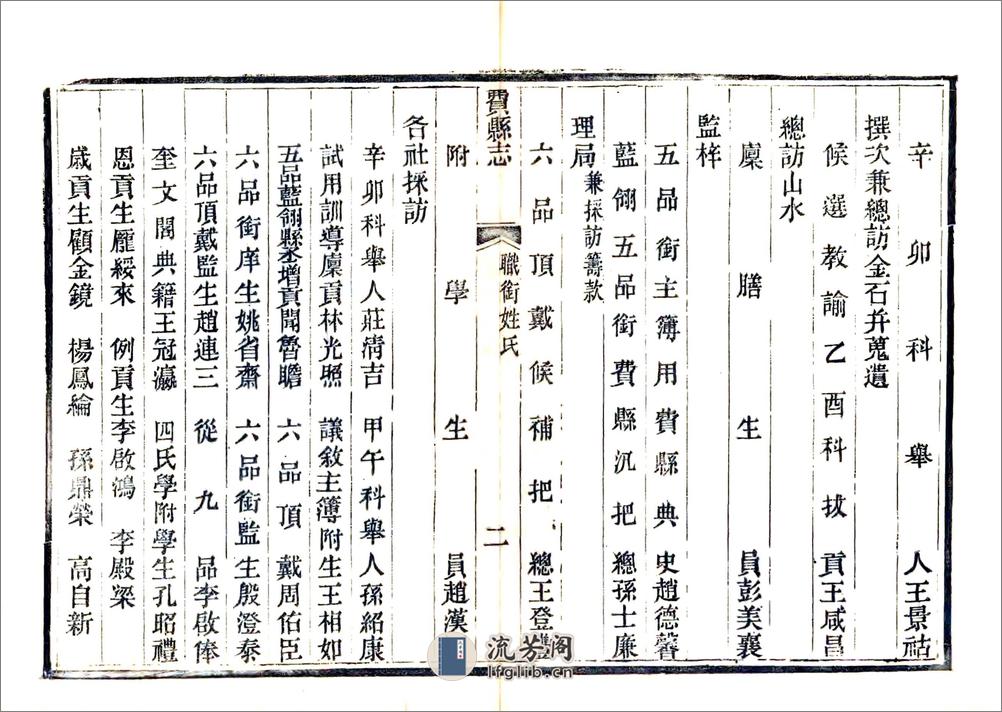 辛卯科舉人王景祜
撰次兼總訪金石并蒐遺
候選教諭乙酉科拔貢王咸昌
總訪山水
廩膳生員彭美襄
監梓
五品銜主簿用費縣典史趙德馨
藍翎五品銜費縣汛把總孫士廉
理局兼採訪籌款
六品頂戴候補把總王登
費縣志
職銜姓氏
二
附學生員趙漢
各社採訪
辛卯科舉人莊清吉 甲午科舉人孫紹康
試用訓導廩貢林光照 議敘主簿附生王相如
五品藍翎縣丞增貢聞魯瞻 六品頂戴周佰臣
六品銜庠生姚省齋 六品銜監生殷澄泰
六品頂戴監生趙連三 從九品李啟俸
奎文閣典籍王冠瀛 四氏學附學生孔昭禮
恩貢生龎綏來 例貢生李啟鴻 李殿樑
歲貢生顧金鏡 楊鳳綸 孫鼎榮 高自新
流芳阁
lfglib.cn